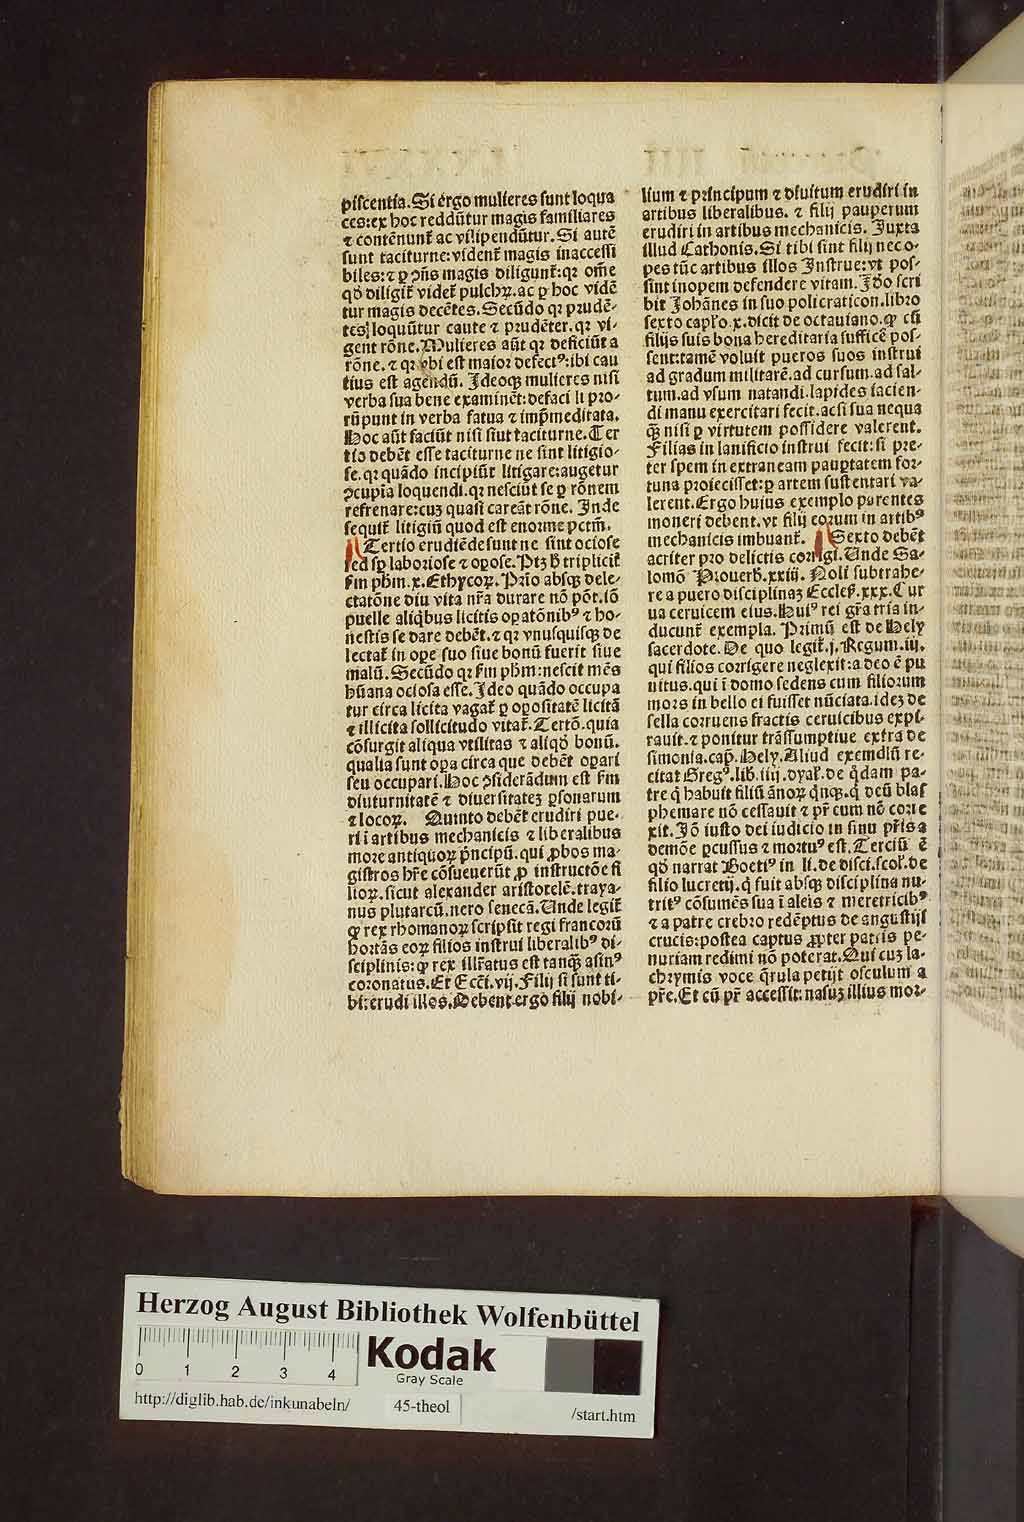 piscentia. Si ergo mulieres sunt loqua
ces: ex hoc reddūtur magis familiares
⁊ contēnunt᷑ ac vilipendūtur. Si autē
sunt taciturne: vident᷑ magis inaccessi
biles: ⁊ ꝑ ↄñs magis diligunt᷑: qꝛ om̄e
qđ diligit᷑ videt᷑ pulchꝝ. ac ꝑ hoc vidē
tur magis decētes. Secūdo qꝛ prudē-
tes loquūtur caute ⁊ prudēter. qꝛ vi-
gent rōne. Mulieres aūt qꝛ deficiūt a
rōne. ⁊ qꝛ vbi est maior defectꝰ: ibi cau
tius est agendū. Ideoqꝫ mulieres nisi
verba sua bene examinēt: defaci li pro-
rūpunt in verba fatua ⁊ imp̄meditata.
Hoc aūt faciūt nisi siut taciturne. Ter
tio debēt esse taciturne ne sint litigio-
se. qꝛ quādo incipiūt litigare: augetur
ↄcupīa loquendi. qꝛ nesciūt se ꝑ rōnem
refrenare: cuꝫ quasi careāt rōne. Inde
sequit᷑ litigiū quod est enorme pctm̄.
Tertio erudiēde sunt ne sint ociose
sed sꝑ laboriose ⁊ oꝑose. Ptꝫ ħ triplicit᷑
s̄m ph̄m. x. Ethycoꝝ. Prīo absqꝫ dele-
ctatōne diu vita nr̄a durare nō pōt. iō
puelle aliq̇bus licitis oꝑatōnibꝰ ⁊ ho-
nestis se dare debēt. ⁊ qꝛ vnusquisqꝫ de
lectat᷑ in oꝑe suo siue bonū fuerit siue
malū. Secūdo qꝛ s̄m ph̄m: nescit mēs
hūana ociosa esse. Ideo quādo occupa
tur circa licita vagat᷑ ꝑ oꝑositatē licitā
⁊ illicita sollicitudo vitat᷑. Tertō. quia
cōsurgit aliqua vtilitas ⁊ aliqđ bonū.
qualia sunt oꝑa circa que debēt oꝑari
seu occupari. Hoc ↄsiderādum est s̄m
diuturnitatē ⁊ diuersitateꝫ ꝑsonarum
⁊ locoꝝ. Quinto debēt erudiri pue-
ri ī artibus mechanicis ⁊ liberalibus
more antiquoꝝ p̄ncipū. qui ꝓbos ma-
gistros hr̄e cōsueuerūt ꝓ instructōe fi
lioꝝ. sicut alexander aristotelē. traya-
nus plutarcū. nero senecā. Unde legit᷑
ꝙ rex rhomanoꝝ scripsit regi francorū
hortās eoꝝ filios instrui liberalibꝰ di-
sciplinis: ꝙ rex illr̄atus est tanqꝫ asinꝰ
coronatus. Et Ecci. vij. Filij si sunt ti-
bi: erudi illos. Debent ergo filij nobi-
lium ⁊ principum ⁊ diuitum erudiri in
artibus liberalibus. ⁊ filij pauperum
erudiri in artibus mechanicis. Juxta
illud Cathonis. Si tibi sint filij nec o-
pes tūc artibus illos Instrue: vt pos-
sint inopem defendere vitam. Iđo scri
bit Johānes in suo policraticon. libro
sexto capl'o. x. dicit de octauiano. ꝙ cū
filijs suis bona hereditaria sufficē pos-
sent: tamē voluit pueros suos instrui
ad gradum militarē. ad cursum. ad sal-
tum. ad vsum natandi. lapides iacien-
di manu exercitari fecit. ac si sua nequa
qꝫ nisi ꝑ virtutem possidere valerent.
Filias in lanificio instrui fecit: si pre-
ter spem in extraneam pauꝑtatem for-
tuna proiecisset: ꝑ artem sustentari va-
lerent. Ergo huius exemplo parentes
moneri debent. vt filij eorum in artibꝰ
mechanicis imbuant᷑. Sexto debēt
acriter pro delictis corrigi. Unde Sa-
lomō Prouerb. xxiij. Noli subtrahe-
re a puero disciplinaꝫ Eccles̄. xxx. Cur
ua ceruicem eius. Huiꝰ rei gr̄a tria in-
ducunt᷑ exempla. Primū est de Hely
sacerdote. De quo legit᷑. j. Regum. iij.
qui filios corrigere neglexit: a deo ē pu
nitus. qui ī domo sedens cum filiorum
mors in bello ei fuisset nūciata. ideꝫ de
sella corruens fractis ceruicibus expi-
rauit. ⁊ ponitur trāssumptiue extra de
simonia. cap̄. Hely. Aliud exemplū re-
citat Gregꝰ. lib̄. iiij. dyal'. de q̇dam pa-
tre q̇ habuit filiū ānoꝝ q̇nqꝫ. q̇ deū blas
phemare nō cessauit ⁊ pr̄ cum nō corre
xit. Iō iusto dei iudicio in sinu pr̄is a
demōe ꝑcussus ⁊ mortuꝰ est. Terciū ē
qđ narrat Boetiꝰ in li. de disci. scol'. de
filio lucretij. q̇ fuit absqꝫ disciplina nu-
tritꝰ cōsumēs sua ī aleis ⁊ meretricibꝰ
⁊ a patre crebro redēptus de angustijs
crucis: postea captus ꝓpter patris pe-
nuriam redimi nō poterat. Qui cuꝫ la-
chrymis voce q̄rula petijt osculum a
pr̄e. Et cū pr̄ accessit: nasuꝫ illius mor-
Herzog August Bibliothek Wolfenbüttel
0 1 2 3 4
Kodak
Gray Scale
http://diglib.hab.de/inkunabeln/ 45-theol /start.htm